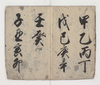 甲乙丙丁
戊己庚辛
壬癸
子丑寅卯